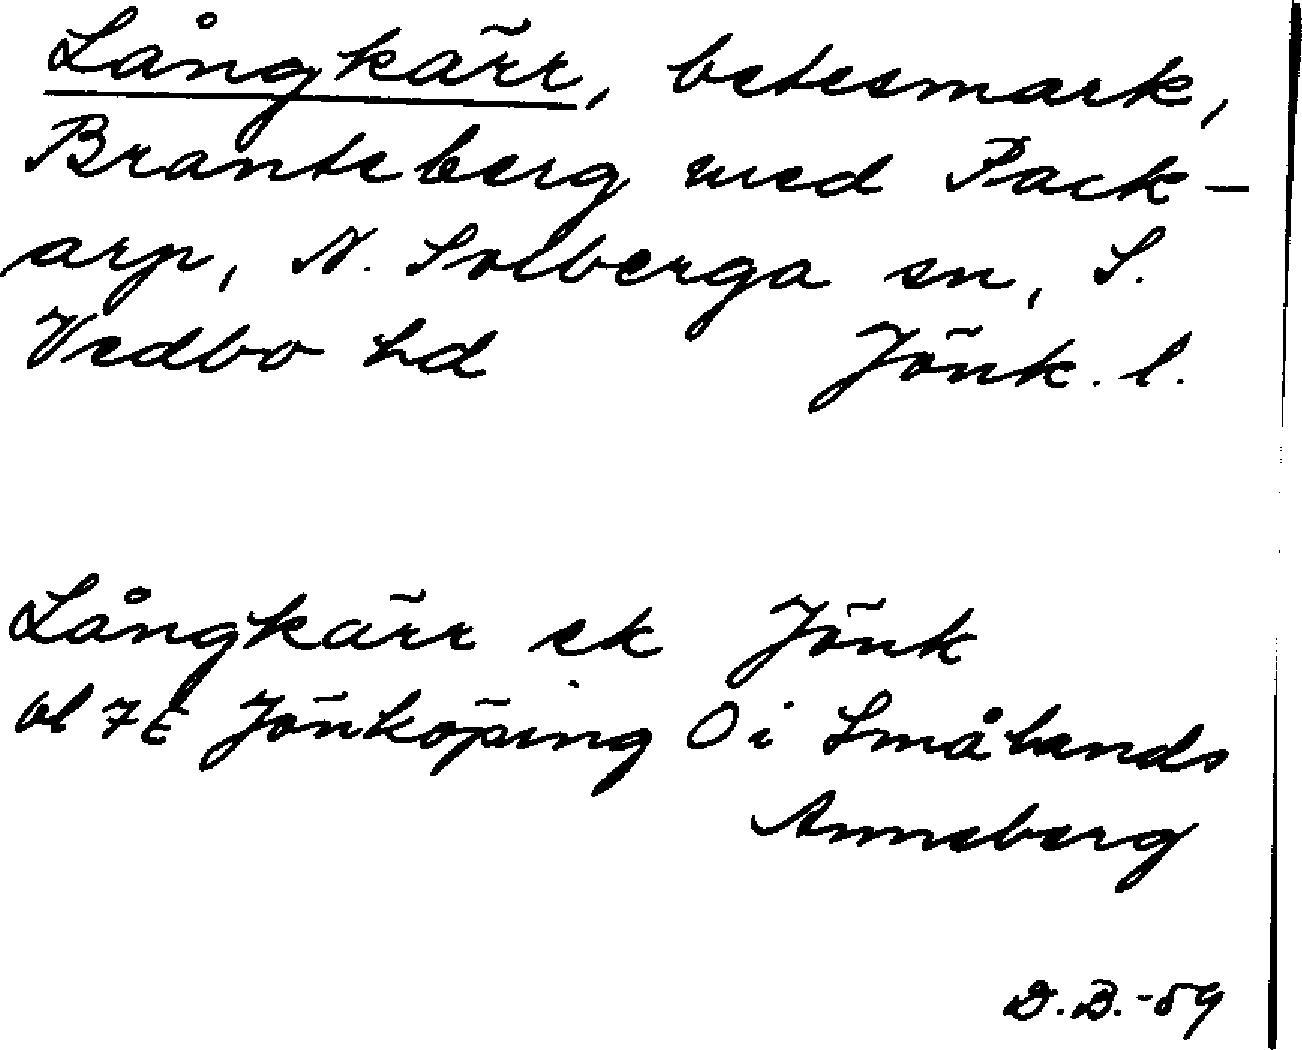 Långkärr, betesmark,
Branteberg med Pack-
arp, N. Solberga sn, S.
Vedbo hd Jönk. l.
Långkärr ek Jönk
bl 7E Jönköping O i Smålands
Anneberg
D.B.-59